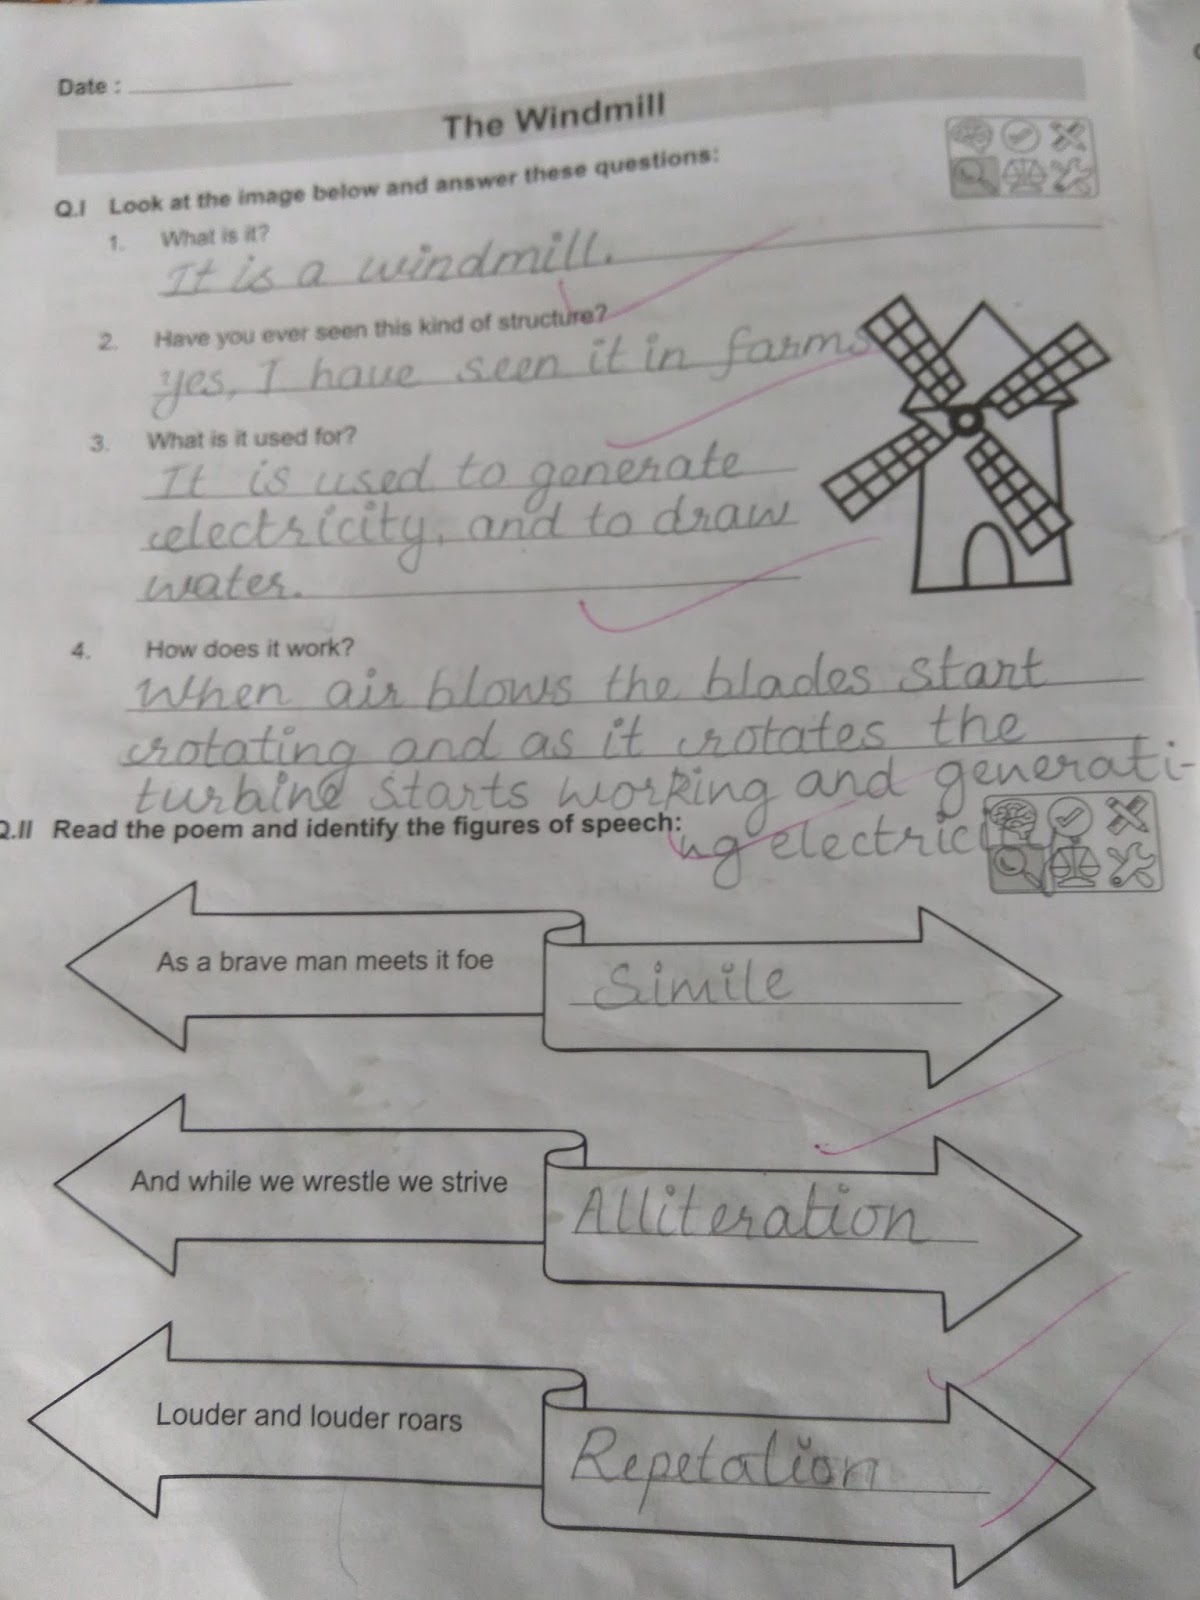 Date :
The Windmill
Q.I Look at the image below and answer these questions:
1. What is it?
It is a windmill.
2. Have you ever seen this kind of structure?
yes, I have seen it in farms
3. What is it used for?
It is used to generate
electricity, and to draw
water.
4. How does it work?
When air blows the blades start
rotating and as it rotates the
turbine starts working and generati-
ng electricity
Q.II Read the poem and identify the figures of speech:
As a brave man meets it foe
Simile
And while we wrestle we strive
Alliteration
Louder and louder roars
Repetation